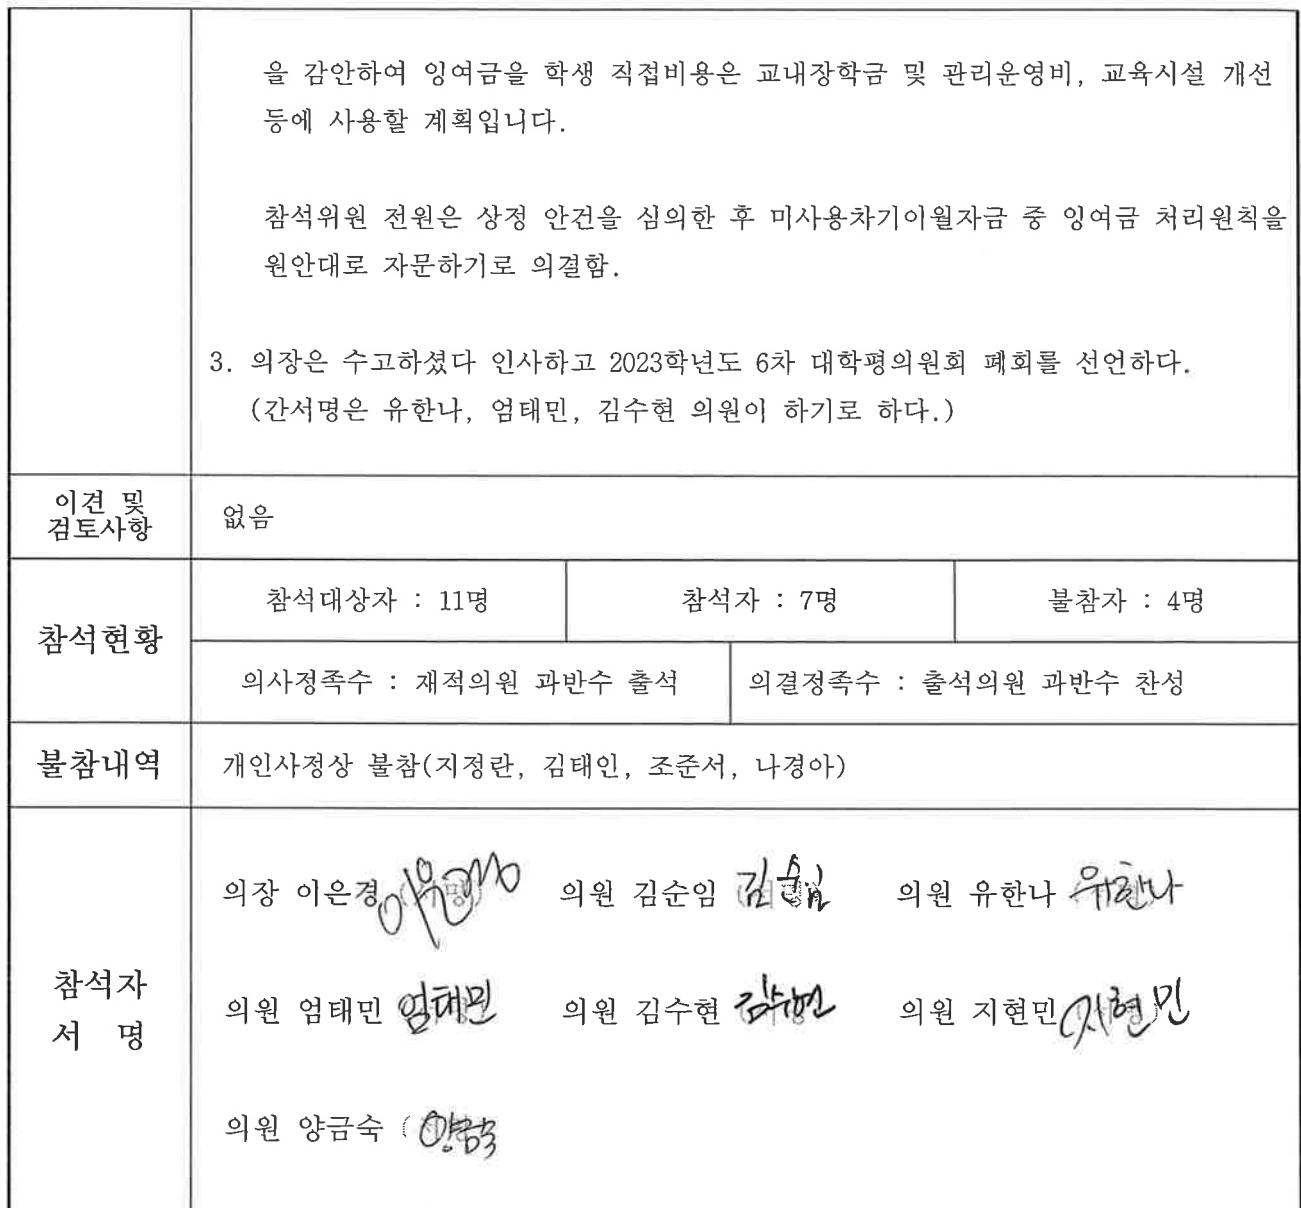 을 감안하여 잉여금을 학생 직접비용은 교내장학금 및 관리운영비, 교육시설 개선
등에 사용할 계획입니다.
참석위원 전원은 상정 안건을 심의한 후 미사용차기이월자금 중 잉여금 처리원칙을
원안대로 자문하기로 의결함.
3. 의장은 수고하셨다 인사하고 2023학년도 6차 대학평의원회 폐회를 선언하다.
(간서명은 유한나, 엄태민, 김수현 의원이 하기로 하다.)
이견 및
검토사항
없음
참석현황
참석대상자 : 11명 참석자 : 7명 불참자 : 4명
의사정족수 : 재적의원 과반수 출석 의결정족수 : 출석의원 과반수 찬성
불참내역
개인사정상 불참(지정란, 김태인, 조준서, 나경아)
참석자
서 명
의장 이은경 이은경 의원 김순임 김순임 의원 유한나 유한나
의원 엄태민 엄태민 의원 김수현 김수현 의원 지현민 지현민
의원 양금숙 양금숙